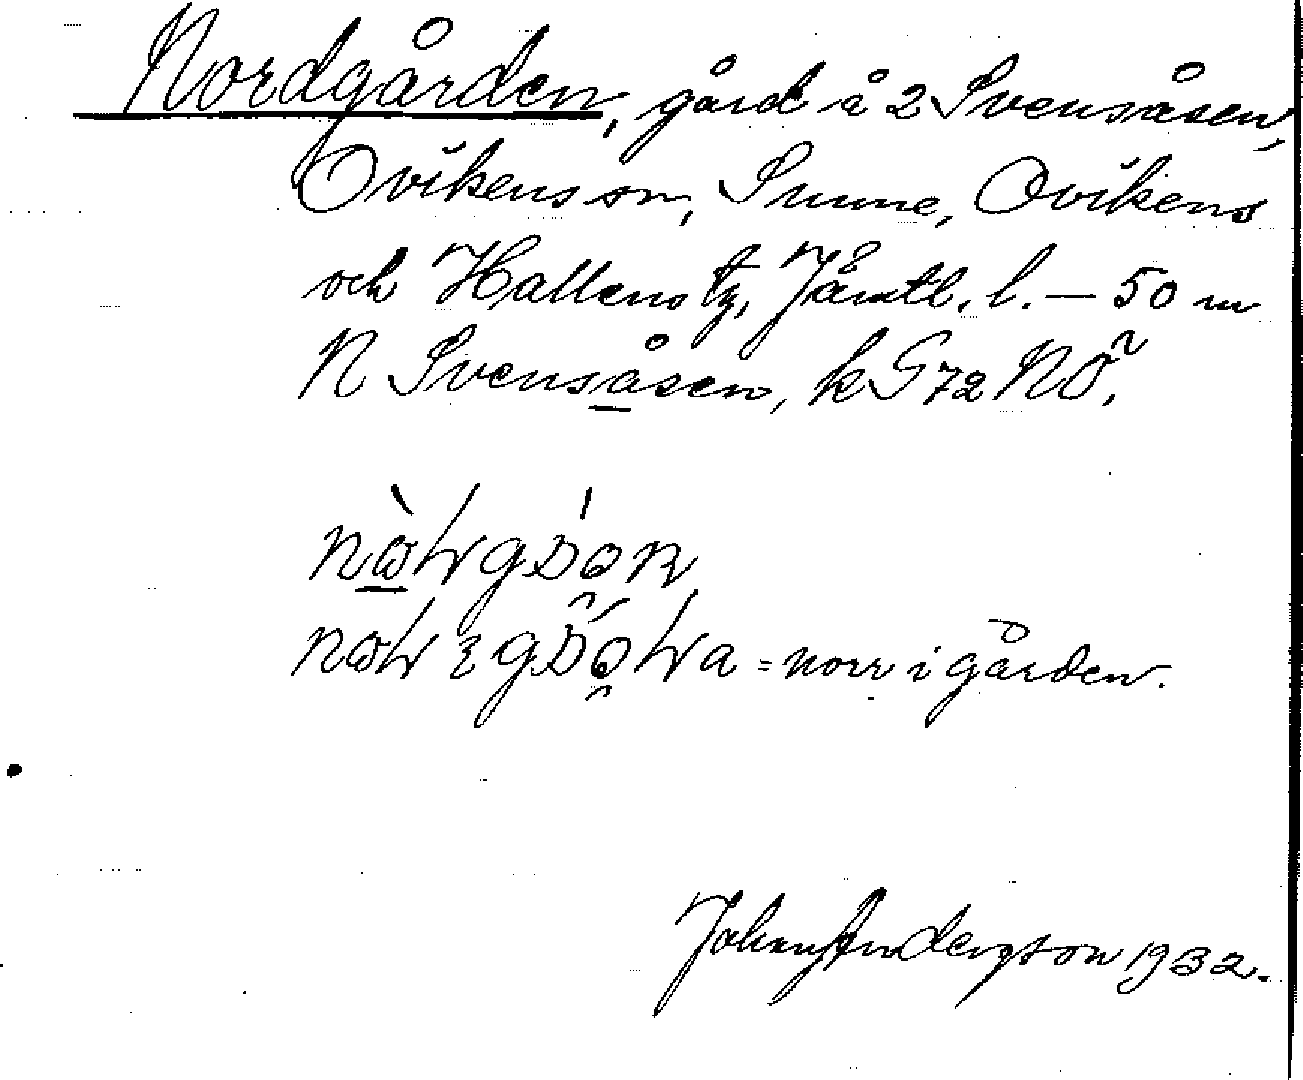 Nordgården, gård å 2 Svensåsen,
Ovikens sn, Sunne, Ovikens
och Hallens tg, Jämtl. l. — 50 m
N Svensåsen, k G 72 NÖ.
= norr i gården.
Johan Andersson 1932.